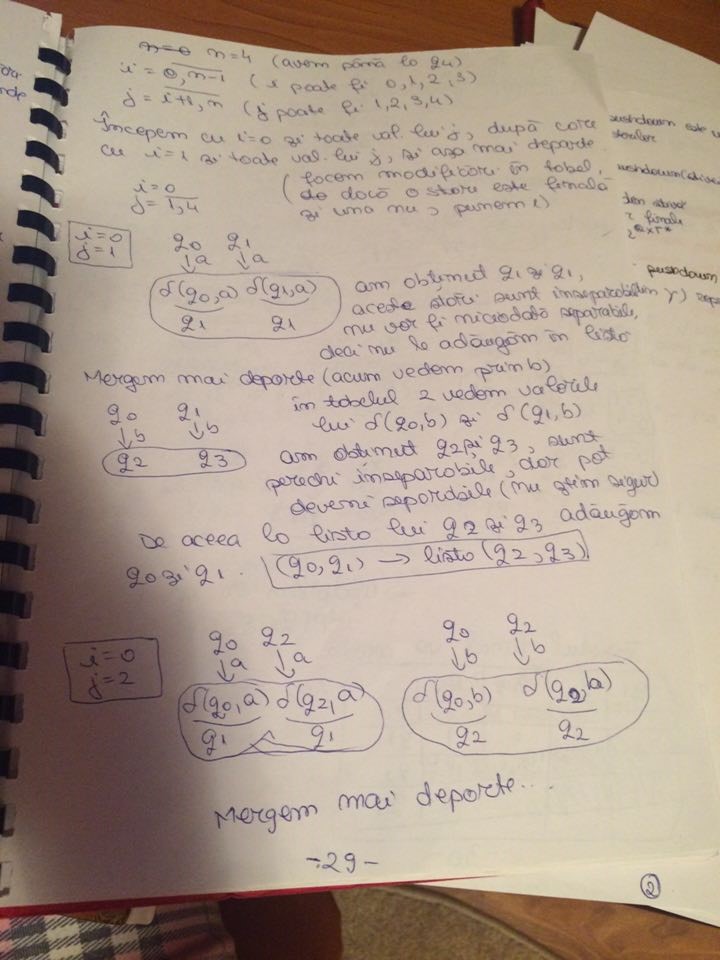 n=0 n=4 (avem până la q4)
i = 0, n-1 (i poate fi 0, 1, 2, 3)
j = i+1, n (j poate fi 1, 2, 3, 4)
Începem cu i=0 și toate val. lui j, după care
cu i=1 și toate val. lui j, și așa mai departe
i=0 (facem modificări în tabel,
j= 1,4 de dacă o stare este finală
și una nu, punem 1)
i=0
j=1
q0 q1
↓a ↓a
δ(q0,a) δ(q1,a)
q1 q1
am obținut q1 și q1,
aceste stări sunt inseparabile
nu vor fi niciodată separabile,
deci nu le adăugăm în listă
Mergem mai departe (acum vedem prin b)
în tabelul 2 vedem valorile
lui δ(q0,b) și δ(q1,b)
q0 q1
↓b ↓b
q2 q3
am obținut q2 și q3, sunt
perechi inseparabile, dar pot
deveni separabile (nu știm sigur)
De aceea la lista lui q2 și q3 adăugăm
q0 și q1. (q0,q1) → listă (q2,q3)
i=0
j=2
q0 q2
↓a ↓a
δ(q0,a) δ(q2,a)
q1 q1
q0 q2
↓b ↓b
δ(q0,b) δ(q2,b)
q2 q2
Mergem mai departe...
-29-
2
pushdown este
pushdown
finale
pushdown